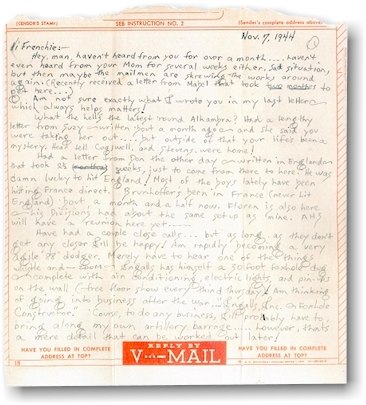 (CENSOR'S STAMP)
SEE INSTRUCTION NO. 2
(Sender's complete address above)
Nov. 7, 1944
Hi Frenchie:-
Hey, man, haven't heard from you for over a month.... haven't
even heard from your Mom for several weeks either. Sad situation,
but then maybe the mailmen are skrewing the works around
again. (Recently received a letter from Mabel that took two months to
get here....
Am not sure exactly what I wrote you in my last letter
which always helps matters!
What the hell's the latest 'round Alhambra? Had a lengthy
letter from Suzy written about a month ago and she said you
were taking her out.... but outside of that your life's been a
mystery. Cogswell, and Stevens, were home!
Had a letter from Don the other day written in England
but took 2½ weeks, just to come from there to here. He was
damn lucky to hit England! Most of the boys lately have been
hitting France direct. Brunhoffer's been in France (never hit
England) 'bout a month and a half now. Floren is also here
his Divisions had about the same set-up as mine. AHS
will have a reunion here yet....
Have had a couple close calls.... but as long as they don't
get any closer I'll be happy! Am rapidly becoming a very
agile "88" dodger. Merely have to hear one of the things
whistle and has himself a 50 foot foxhole dug
complete with air conditioning, electric lights, and pin-ups
on the wall (free floor show every third Thursday). Am thinking
of going into business after the war.... Inc. on Foxhole
Construction. 'Course, to do any business, I'll probably have to
bring along my own artillery barrage.... however, that's
a mere detail that can be worked out later!
HAVE YOU FILLED IN COMPLETE
ADDRESS AT TOP?
REPLY BY
V···—MAIL
HAVE YOU FILLED IN COMPLETE
ADDRESS AT TOP?